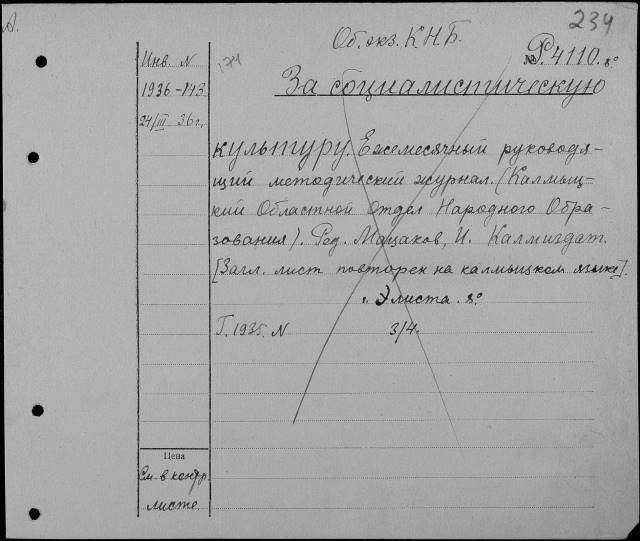 А.
234
Об. экз. К.Н.Б.
№ Р. 4110. 8º
Инв. N
1936-143
24/III 36 г.
174
За социалистическую
культуру. Ежемесячный руководя-
щий методический журнал. (Калмыц-
кий Областной Отдел Народного Обра-
зования). Ред. Мацаков, И. Калмиздат.
[Загл. лист повторен на калмыцком языке].
Элиста. 8º
Г. 1935. N 3/4.
Цена
См. в контр.
листе.